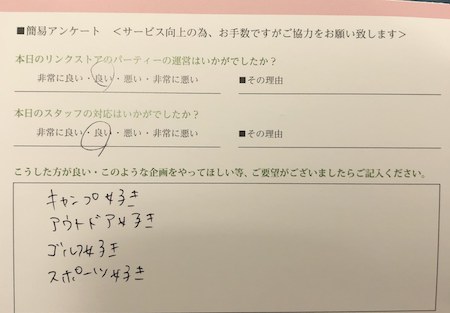 ■簡易アンケート　＜サービス向上の為、お手数ですがご協力をお願い致します＞
本日のリンクストアのパーティーの運営はいかがでしたか？
非常に良い・良い・悪い・非常に悪い　■その理由
本日のスタッフの対応はいかがでしたか？
非常に良い・良い・悪い・非常に悪い　■その理由
こうした方が良い・このような企画をやってほしい等、ご要望がございましたらご記入ください。
キャンプ好き
アウトドア好き
ゴルフ好き
スポーツ好き